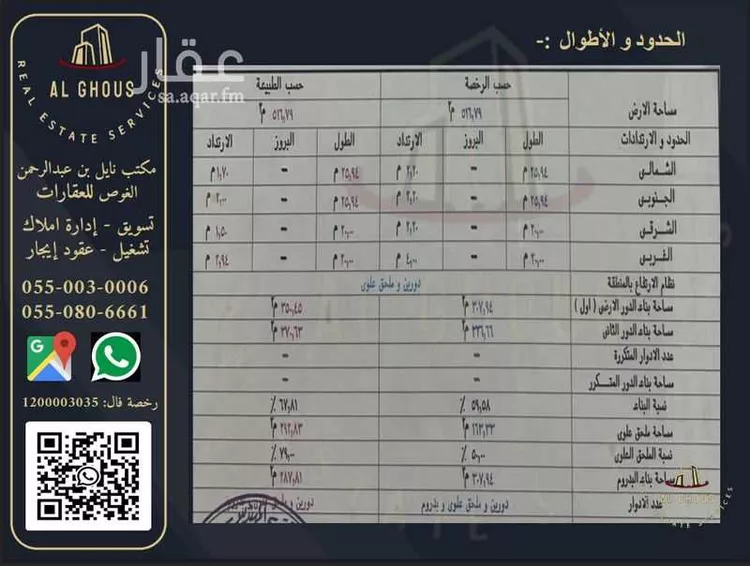 الحدود و الأطوال :-
AL GHOUS
REAL ESTATE SERVICES
عقار
sa.aqar.fm
مكتب نايل بن عبدالرحمن
الغوص للعقارات
تسويق - إدارة املاك
تشغيل - عقود إيجار
055-003-0006
055-080-6661
رخصة فال: 1200003035
حسب الرخصة حسب الطبيعة
مساحة الارض ٥١٦,٧٩ م٢ ٥١٦,٧٩ م٢
الحدود و الارتدادات الطول البروز الارتداد الطول البروز الارتداد
الشمالي ٢٥,٩٤ م - ٢,٢٠ م ٢٥,٩٤ م - ١,٧٠ م
الجنوبي ٢٥,٩٤ م - ٢,٢٠ م ٢٥,٩٤ م - ٢,٠٠ م
الشرقي ٢٠,٠٠ م - ٢,٢٠ م ٢٠,٠٠ م - ١,٥٠ م
الغربي ٢٠,٠٠ م - ٤,٠٠ م ٢٠,٠٠ م - ٢,٩٤ م
نظام الارتفاع بالمنطقة دورين و ملحق علوي
مساحة بناء الدور الارضي ( اول ) ٣٠٧,٩٤ م٢ ٣٥٠,٤٥ م٢
مساحة بناء الدور الثاني ٣٣٦,٦٦ م٢ ٣٧٠,٦٣ م٢
عدد الادوار المتكررة - -
مساحة بناء الدور المتكرر - -
نسبة البناء ٥٩,٥٨ % ٦٧,٨١ %
مساحة ملحق علوي ١٦٣,٣٣ م٢ ٢٩٢,٨٣ م٢
نسبة الملحق العلوي ٥٠,٠٠ % ٧٩,٠٠ %
مساحة بناء البدروم ٣٠٧,٩٤ م٢ ٢٨٧,٨١ م٢
عدد الادوار دورين و ملحق علوي و بدروم دورين و ملحق
AL GHOUS